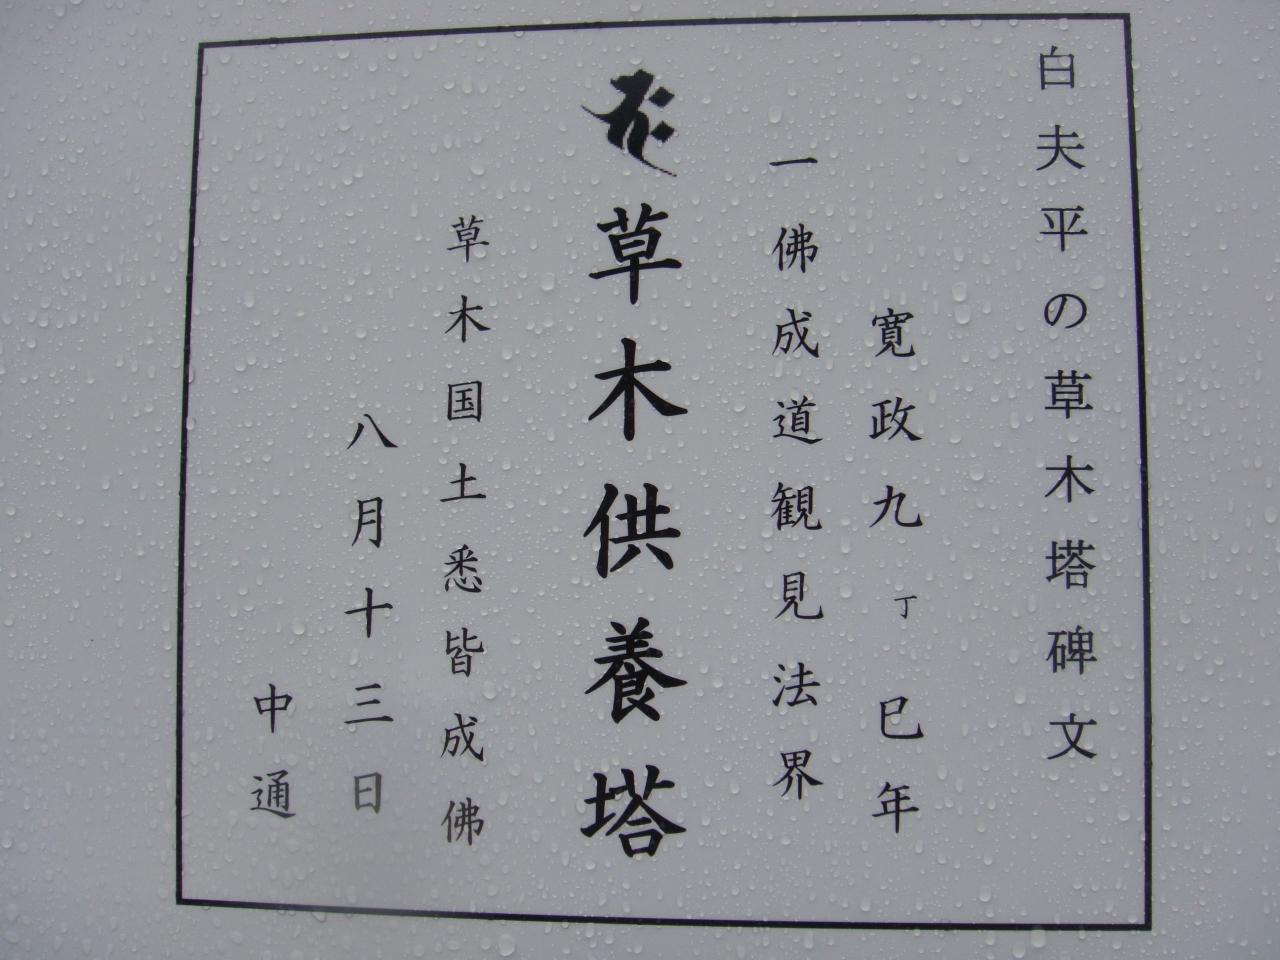 白夫平の草木塔碑文
寛政九丁巳年
一佛成道観見法界
草木供養塔
草木国土悉皆成佛
八月十三日
中通